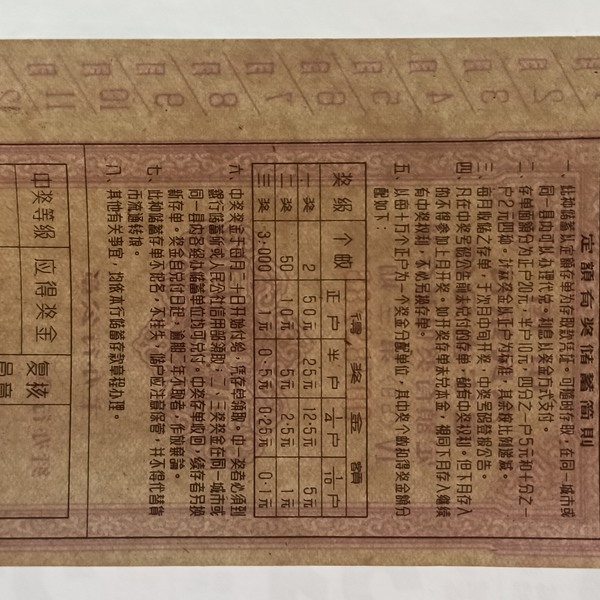 定額有奖储蓄简則
一、此种储蓄以定额存单为存取款凭证。可随时存取，在同一城市或
同一县内可以办理代兑。利息以奖金方式支付。
二、存单面额分为正户20元，半户10元，四分之一户5元和十分之一
户2元四种。计算奖金以正户为标准，其余按比例递减。
三、每月收储之存单，于次月中旬开奖，中奖号码登报公告。
四、凡在中奖号码公告前未兑付的存单，都有中奖权利。但下月存入
的不得参加上月开奖。如开奖存单未兑本金，相同下月存入继续
有中奖权利，不必另换存单。
五、以每十万个正户为一个奖金分配单位，其中奖个数和得奖金额分
配如下：
奖级 个数 得奖金額
正户 半户 1/4户 1/10户
一奖 2 50元 25元 12·5元 5元
二奖 50 10元 5元 2·5元 1元
三奖 3,000 1元 0·5元 0·25元 0·1元
六、中奖奖金于每月二十日开始付给，凭存单领取。中一奖者必须到
银行储蓄所或人民公社信用部领取；二、三奖奖金在同一城市或
同一县内各经办储蓄单位均可兑付。中奖存单收回，续存者另换
新存单。奖金自兑付日起，逾期一年不取者，作废
七、此种储蓄存单不记名，不挂失，储户应注意保管，并不得代替货
币流通转让。
八、其他有关事宜，均依本行储蓄存款章程办理。
中奖等级 应得奖金 复核
员章